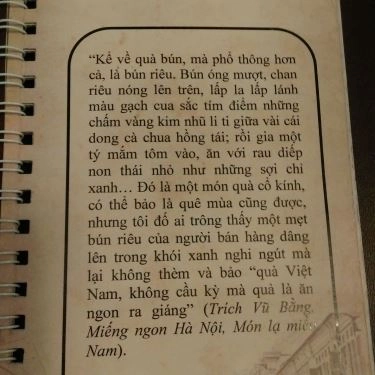 “Kể về quà bún, mà phổ thông hơn
cả, là bún riêu. Bún óng mượt, chan
riêu nóng lên trên, lấp la lấp lánh
màu gạch cua sắc tím điểm những
chấm vàng kim nhũ li ti giữa vài cái
dong cà chua hồng tái; rồi gia một
tý mắm tôm vào, ăn với rau diếp
non thái nhỏ như những sợi chỉ
xanh... Đó là một món quà cổ kính,
có thể bảo là quê mùa cũng được,
nhưng tôi đố ai trông thấy một mẹt
bún riêu của người bán hàng dâng
lên trong khói xanh nghi ngút mà
lại không thèm và bảo “quà Việt
Nam, không cầu kỳ mà quả là ăn
ngon ra giáng” (Trích Vũ Bằng,
Miếng ngon Hà Nội, Món lạ miền
Nam).